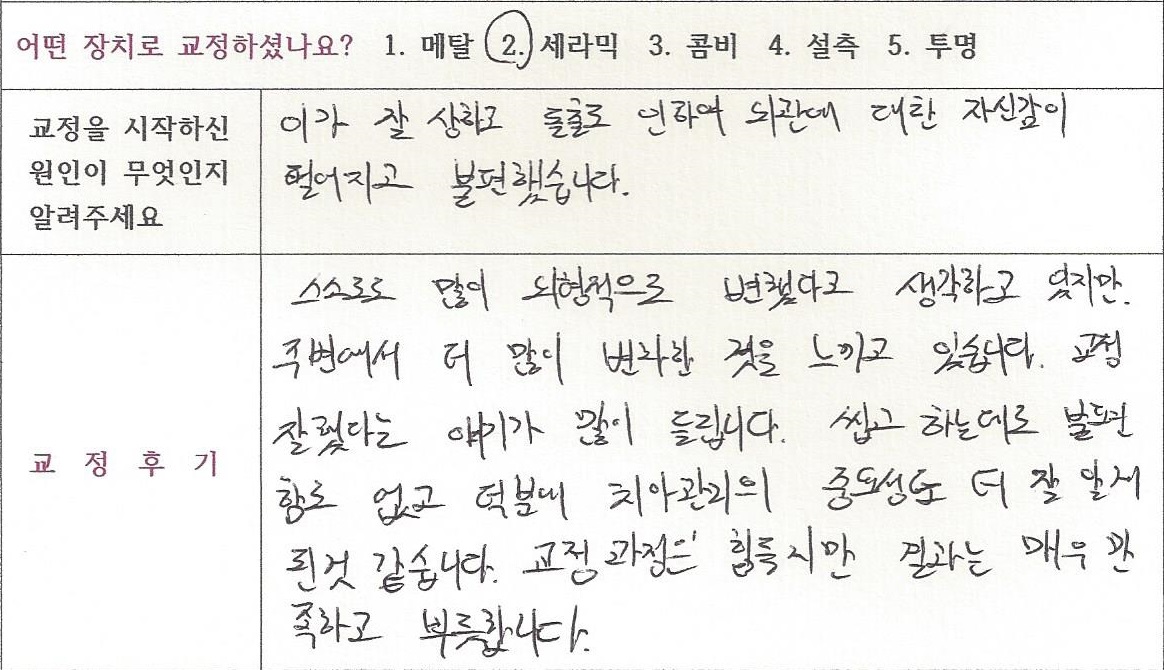 어떤 장치로 교정하셨나요? 1. 메탈 2. 세라믹 3. 콤비 4. 설측 5. 투명
교정을 시작하신
원인이 무엇인지
알려주세요
이가 잘 상하고 돌출로 인하여 외관에 대한 자신감이
떨어지고 불편했습니다.
교 정 후 기
스스로도 많이 외형적으로 변했다고 생각하고 있지만.
주변에서 더 많이 변화한 것을 느끼고 있습니다. 교정
잘됐다는 얘기가 많이 들립니다. 씹고 하는데도 불편
함도 없고 덕분에 치아관리의 중요성도 더 잘 알게
된것 같습니다. 교정 과정은 힘들지만 결과는 매우 만
족하고 뿌듯합니다.